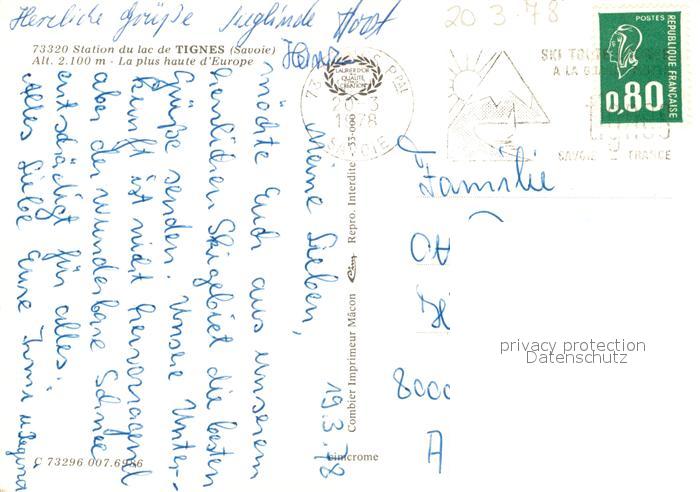 Herzliche Grüße Sieglinde Horst
Heinz
20 3.78
73320 Station du lac de TIGNES (Savoie)
Alt. 2.100 m - La plus haute d'Europe
19.3.78
Meine Lieben,
möchte Euch aus unserem
herrlichen Skigebiet die besten
Grüße senden. Unsere Unter-
kunft ist nicht hervorragend
aber der wunderbare Schnee
entschädigt für alles.
Alles Liebe Eure
C 73296.007.6986
Combier Imprimeur Mâcon Cim Repro. Interdite - 35-000
cimcrome
LAURÉAT D'OR
QUALITÉ
CRÉATION
73
20-3
1978
SAVOIE
SKI
A LA
SAVOIE FRANCE
POSTES
RÉPUBLIQUE FRANÇAISE
0,80
Familie
8000
A
privacy protection
Datenschutz